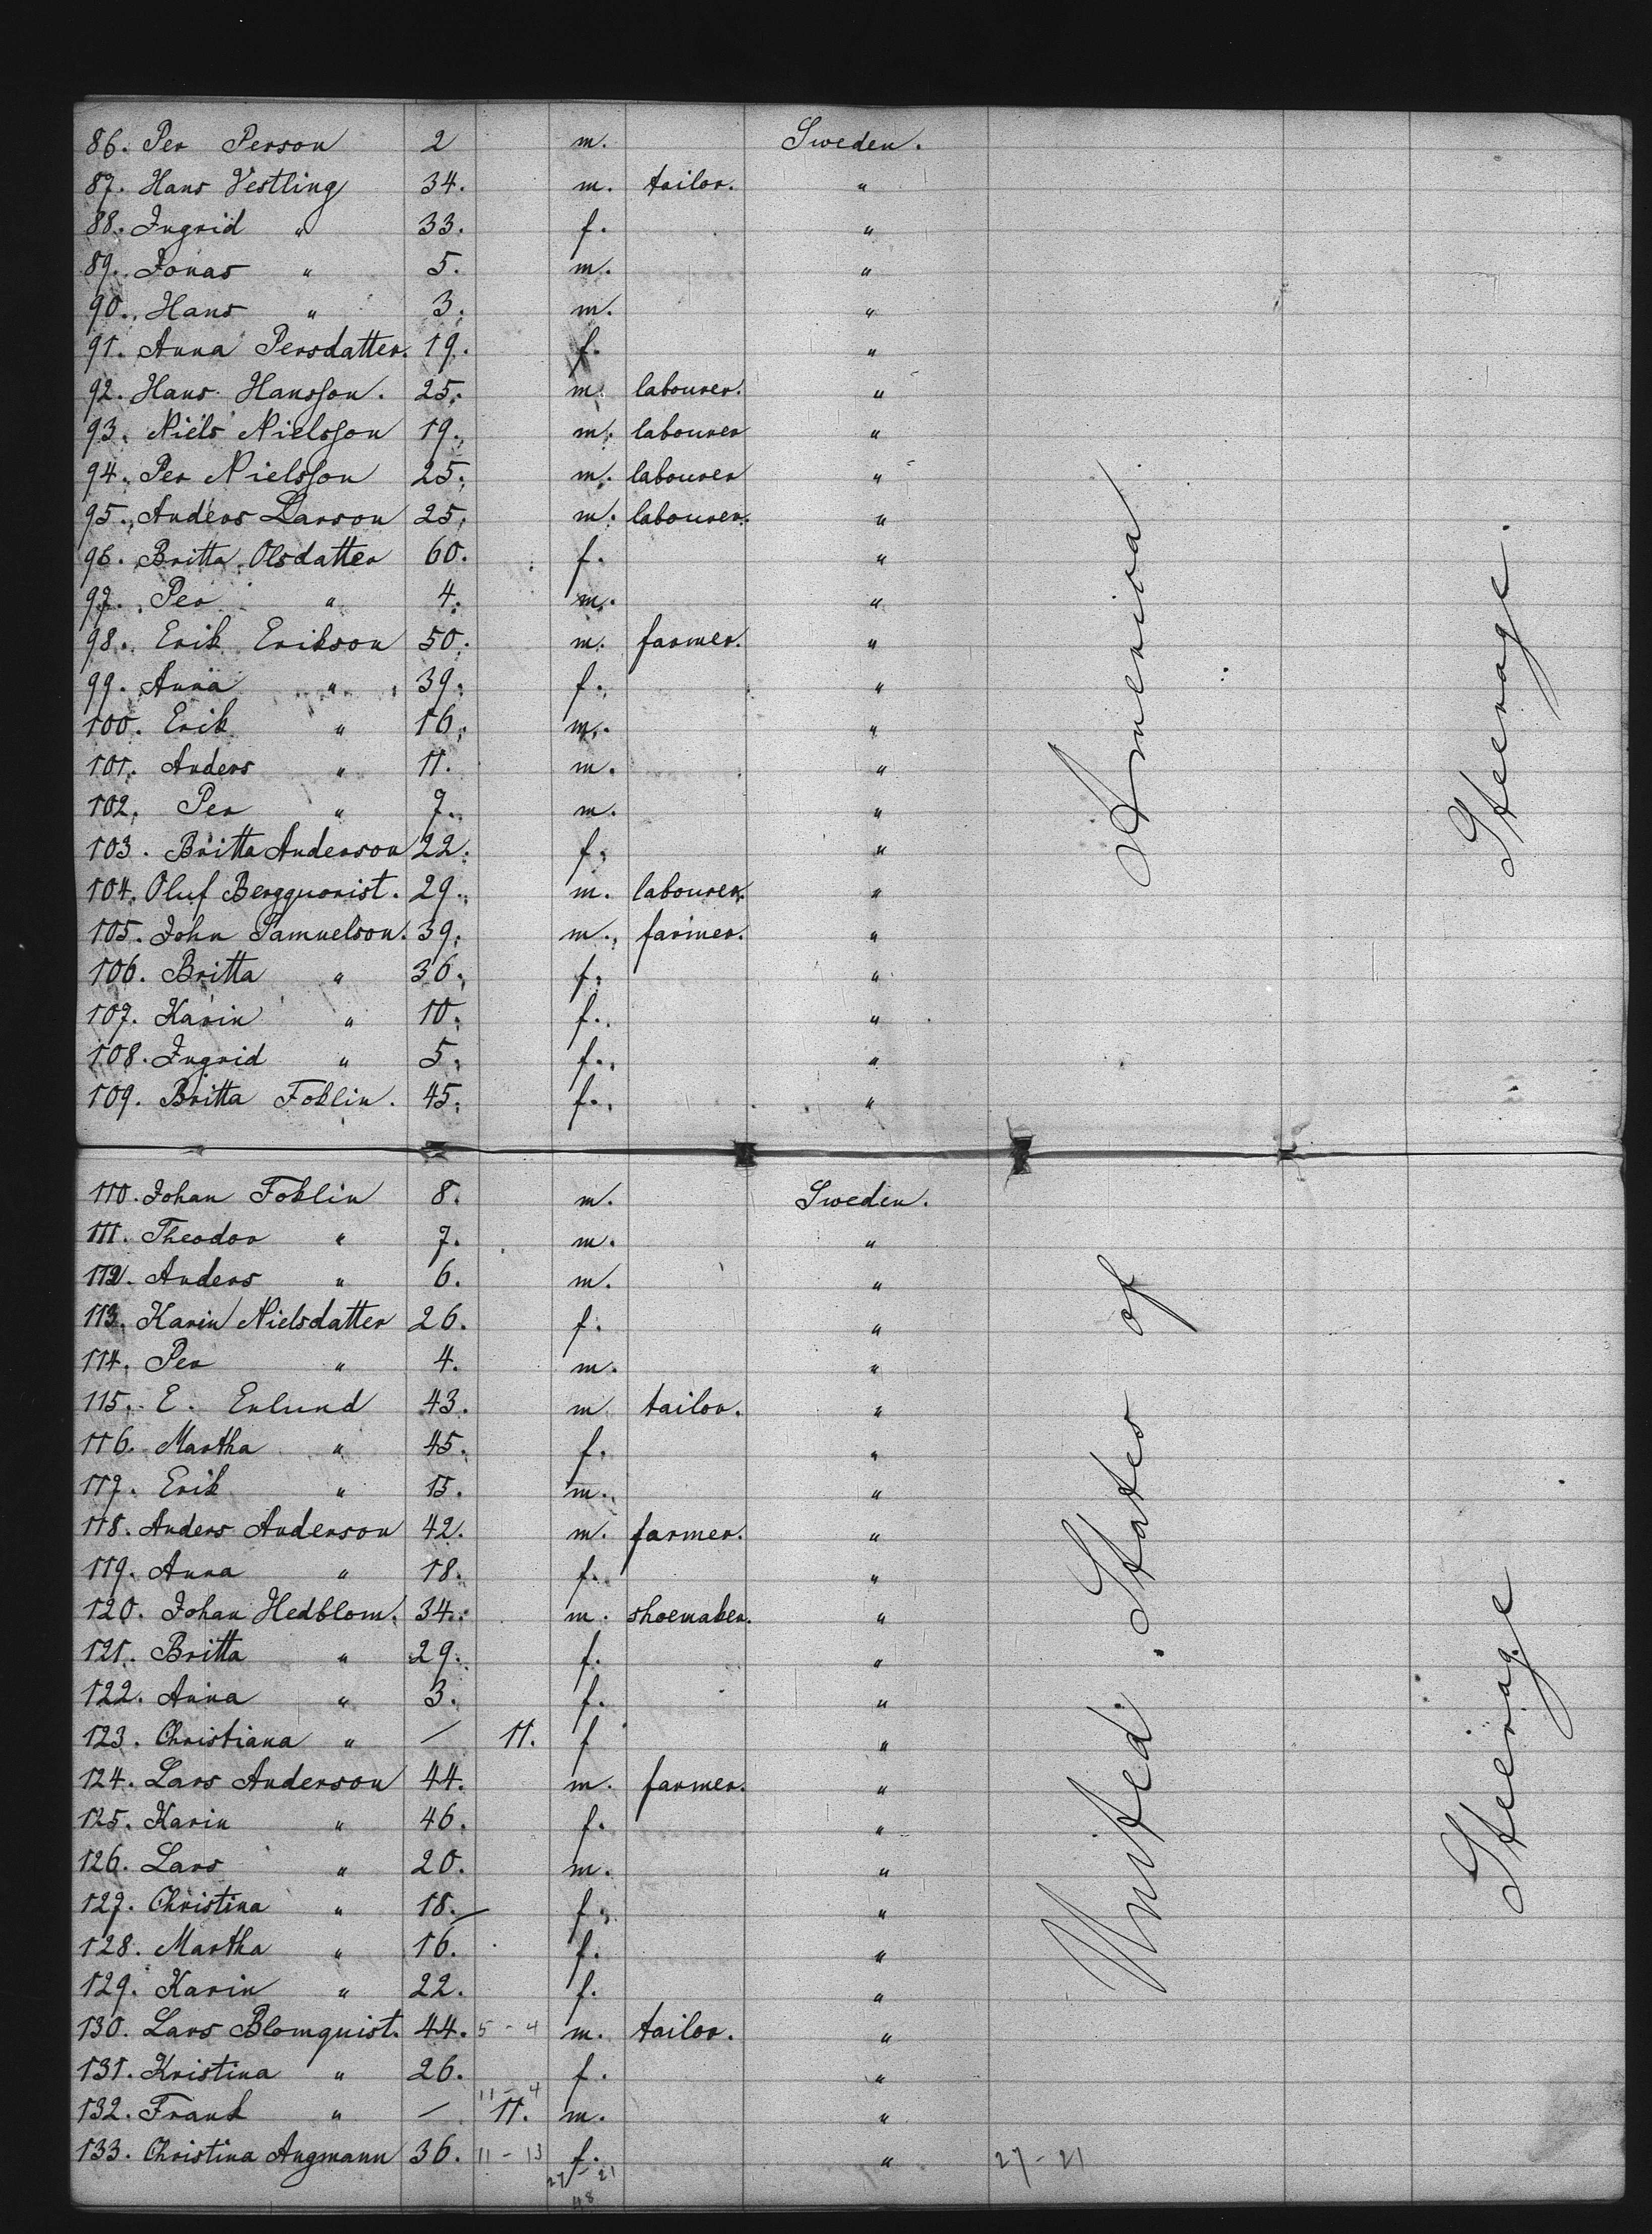 86. Per Person 2 m. Sweden.
87. Hans Vestling 34. m. tailor. "
88. Ingrid " 33. f. "
89. Jonas " 5. m. "
90. Hans " 3. m. "
91. Anna Persdatter. 19. f. "
92. Hans Hansson. 25. m. labourer. "
93. Niels Nielsson 19. m. labourer "
94. Per Nielsson 25. m. labourer "
95. Anders Larson 25. m. labourer. "
96. Britta Olsdatter 60. f. "
97. Per " 4. m. "
98. Erik Erikson 50. m. farmer. "
99. Anna " 39. f. "
100. Erik " 16. m. "
101. Anders " 11. m. "
102. Per " 7. m. "
103. Britta Anderson 22. f. "
104. Oluf Bergquorist. 29. m. labourer. "
105. John Samuelson. 39. m. farmer. "
106. Britta " 36. f. "
107. Karin " 10. f. "
108. Ingrid " 5. f. "
109. Britta Foblin. 45. f. "
110. Johan Foblin 8. m. Sweden.
111. Theodor " 7. m. "
112. Anders " 6. m. "
113. Karin Nielsdatter 26. f. "
114. Per " 4. m. "
115. E. Enlund 43. m tailor. "
116. Martha " 45. f. "
117. Erik " 15. m. "
118. Anders Anderson 42. m. farmer. "
119. Anna " 18. f. "
120. Johan Hedblom. 34. m. shoemaker. "
121. Britta " 29. f. "
122. Anna " 3. f. "
123. Christiana " / 11. f "
124. Lars Anderson 44. m. farmer. "
125. Karin " 46. f. "
126. Lars " 20. m. "
127. Christina " 18. f. "
128. Martha " 16. f. "
129. Karin " 22. f. "
130. Lars Blomquist. 44. 5 - 4 m. tailor. "
131. Kristina " 26. f. "
11 - 4
132. Frank " / 11. m. "
133. Christina Angmann 36. 11 - 13 f. " 27 - 21
27 - 21
48
United States of America
Steerage.
Steerage